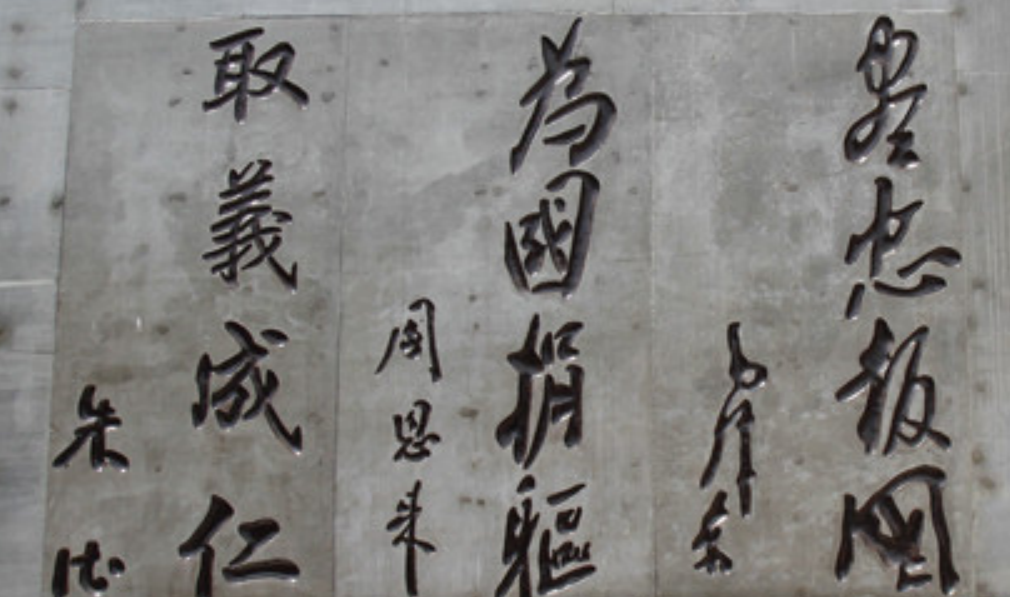 盡忠報國
毛澤东
為國捐軀
周恩来
取義成仁
朱德